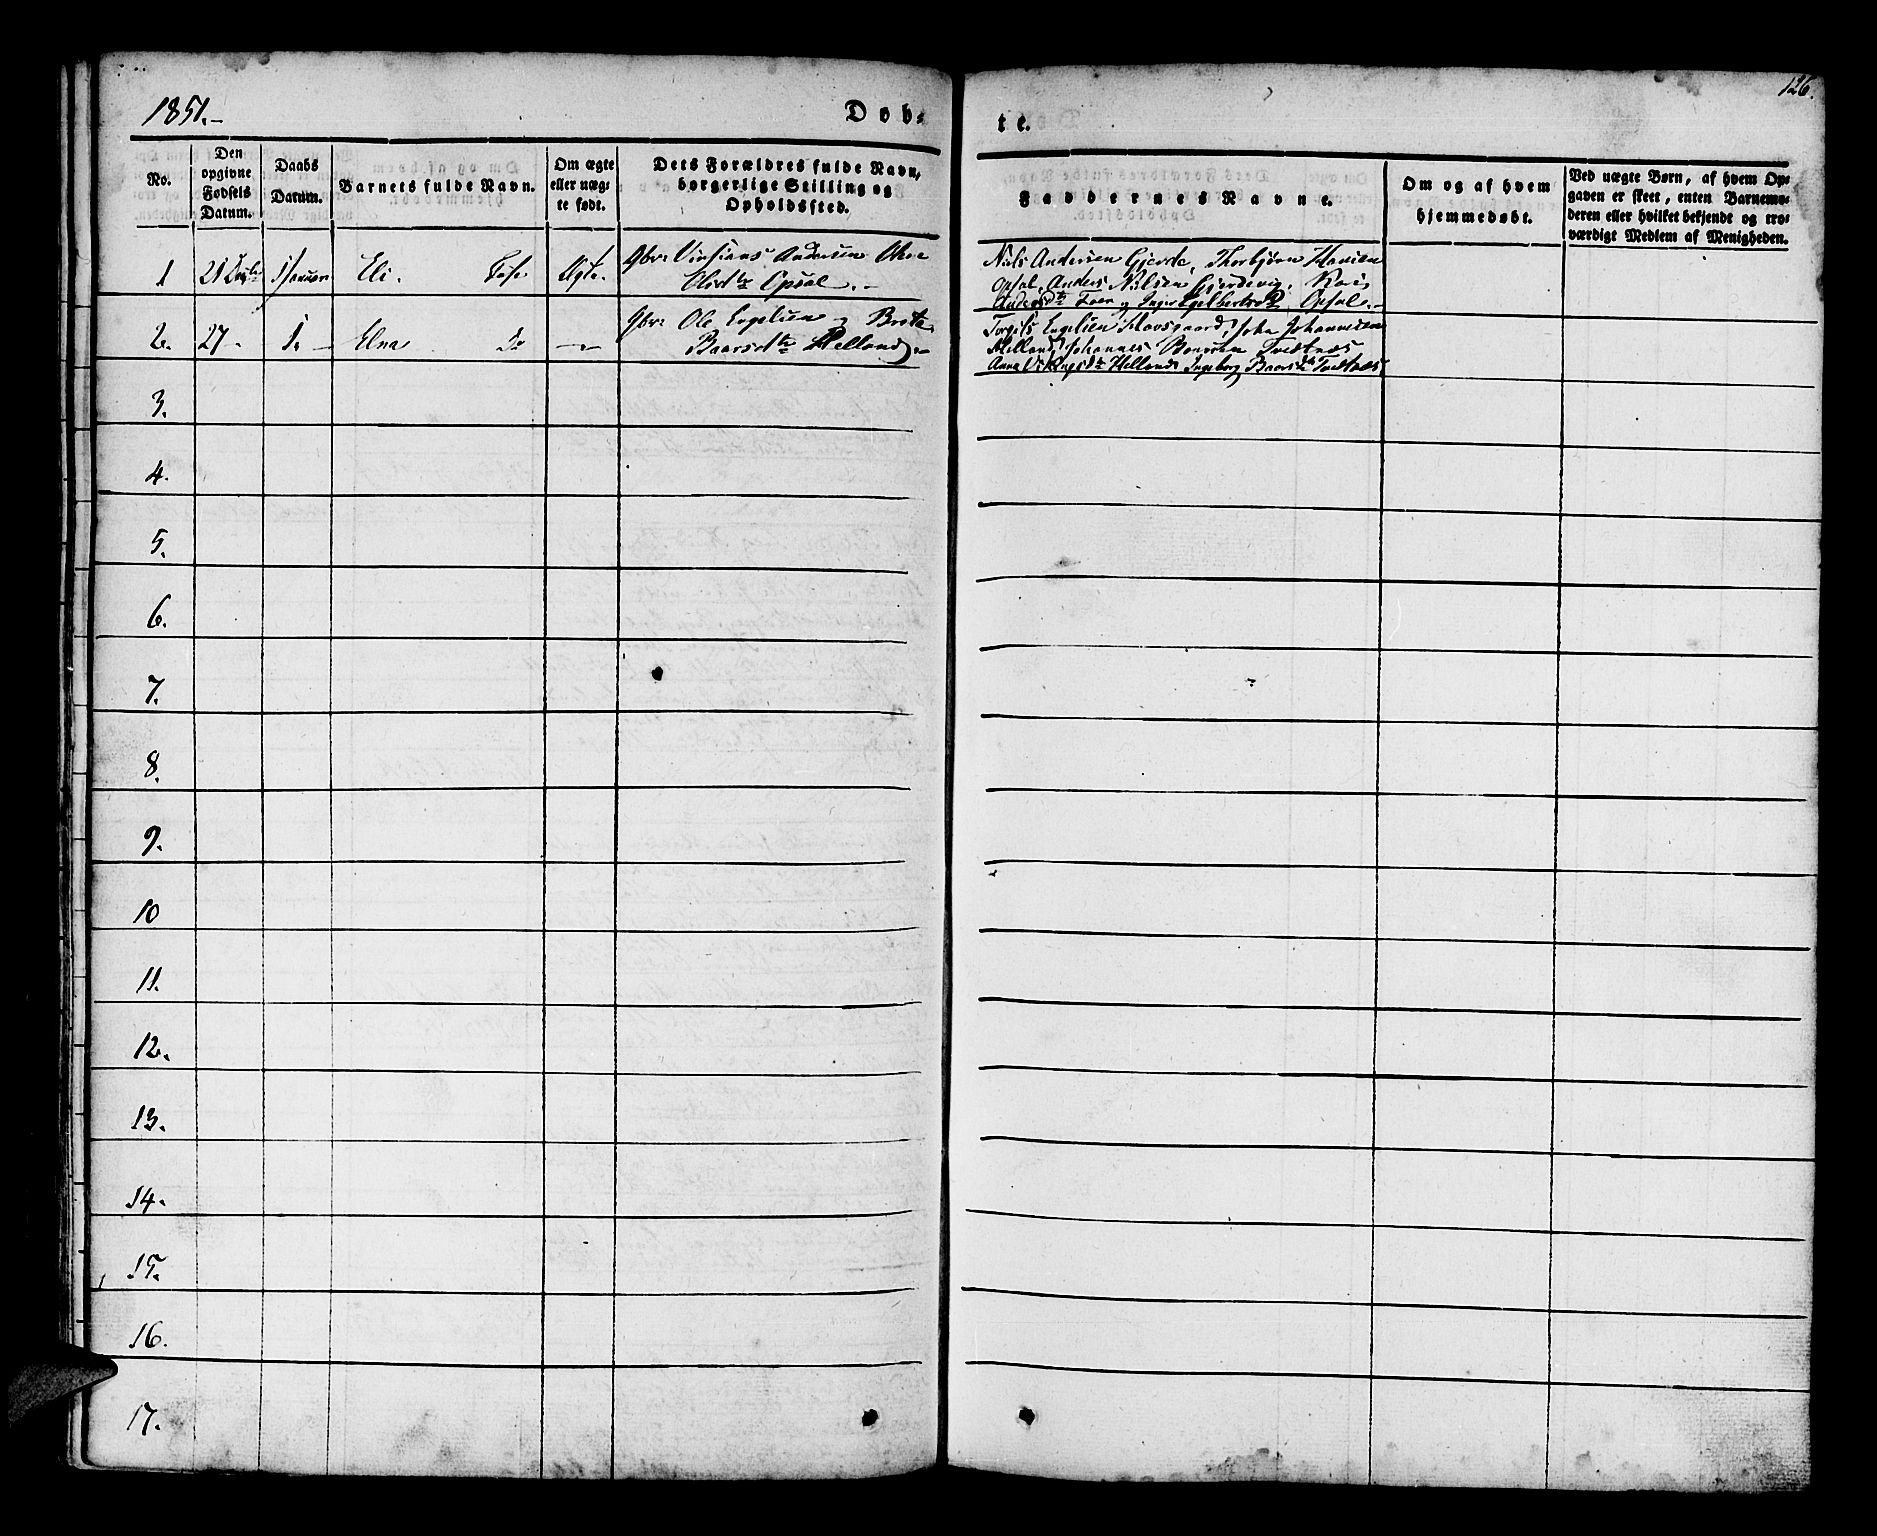 126.
1851.-
Døb-
te.
No.
Den opgivne Fødsels Datum.
Daabs Datum.
Barnets fulde Navn.
Om ægte eller uæg-te født.
Dets Forældres fulde Navn, borgerlige Stilling og Opholdssted.
Faddernes Navne.
Om og af hvem hjemmedøbt.
Ved uægte Børn, af hvem Op-
gaven er skeet, enten Barnemo-
deren eller hvilket bekjendt og tro-
værdigt Medlem af Menigheden.
1 21 1 Januar Eli. Ægte.
Gbr: Andersen
Opsal.-
Niels Andersen Gjerde, Thorbjørn Hansen
Opsal, Anders Nilsen Gjerdevig, Kari
Opsal.-
2. 27- 1.- Elna Do -"-
Gbr: Ole Engelsen og Brita
Baarsdtr Helland.-
Torgils Engelsen Johannesen
Helland, Johannes Baarsen Tvedtnæs
Anna Helland, Ingeborg Baarsdtr Tvedtnæs
3.
4.
5.
6.
7.
8.
9.
10
11.
12.
13.
14.
15.
16.
17.